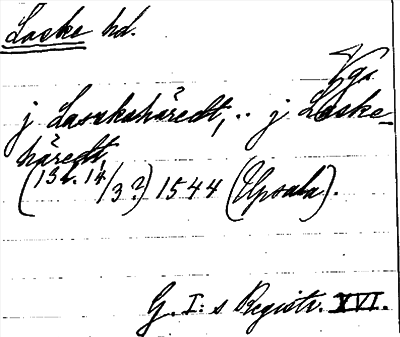 Laske hd.
Vgs.
j Lasskahäredt, .. j Laske-
häredt
(13 l. 14/3?) 1544 (Upsala).
G. I:s Registr. XVI.